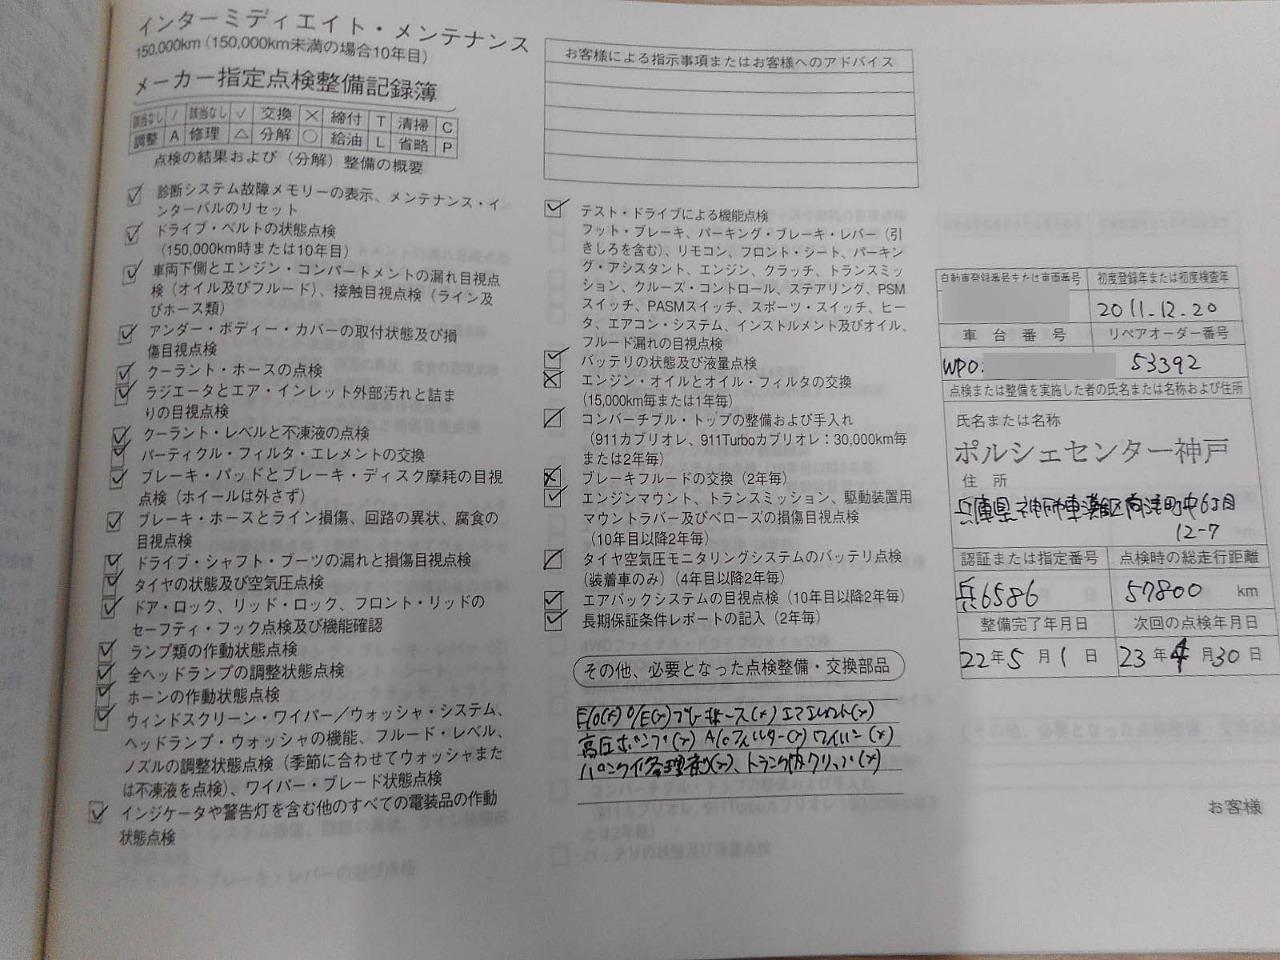 インターミディエイト・メンテナンス
150,000km(150,000km未満の場合10年目)
メーカー指定点検整備記録簿
該当なし / 該当なし ✓ 交換 ✕ 締付 T 清掃 C
調整 A 修理 △ 分解 ○ 給油 L 省略 P
点検の結果および(分解)整備の概要
診断システム故障メモリーの表示、メンテナンス・イ
ンターバルのリセット
ドライブ・ベルトの状態点検
(150,000km時または10年目)
車両下側とエンジン・コンパートメントの漏れ目視点
検(オイル及びフルード)、接触目視点検(ライン及
びホース類)
アンダー・ボディー・カバーの取付状態及び損
傷目視点検
クーラント・ホースの点検
ラジエータとエア・インレット外部汚れと詰ま
りの目視点検
クーラント・レベルと不凍液の点検
パーティクル・フィルタ・エレメントの交換
ブレーキ・パッドとブレーキ・ディスク摩耗の目視
点検(ホイールは外さず)
ブレーキ・ホースとライン損傷、回路の異状、腐食の
目視点検
ドライブ・シャフト・ブーツの漏れと損傷目視点検
タイヤの状態及び空気圧点検
ドア・ロック、リッド・ロック、フロント・リッドの
セーフティ・フック点検及び機能確認
ランプ類の作動状態点検
全ヘッドランプの調整状態点検
ホーンの作動状態点検
ウィンドスクリーン・ワイパー/ウォッシャ・システム、
ヘッドランプ・ウォッシャの機能、フルード・レベル、
ノズルの調整状態点検(季節に合わせてウォッシャまた
は不凍液を点検)、ワイパー・ブレード状態点検
インジケータや警告灯を含む他のすべての電装品の作動
状態点検
お客様による指示事項またはお客様へのアドバイス
テスト・ドライブによる機能点検
フット・ブレーキ、パーキング・ブレーキ・レバー(引
きしろを含む)、リモコン、フロント・シート、パーキン
グ・アシスタント、エンジン、クラッチ、トランスミッ
ション、クルーズ・コントロール、ステアリング、PSM
スイッチ、PASMスイッチ、スポーツ・スイッチ、ヒー
タ、エアコン・システム、インストルメント及びオイル、
フルード漏れの目視点検
バッテリの状態及び液量点検
エンジン・オイルとオイル・フィルタの交換
(15,000km毎または1年毎)
コンバーチブル・トップの整備および手入れ
(911カブリオレ、911Turboカブリオレ:30,000km毎
または2年毎)
ブレーキフルードの交換(2年毎)
エンジンマウント、トランスミッション、駆動装置用
マウントラバー及びベローズの損傷目視点検
(10年目以降2年毎)
タイヤ空気圧モニタリングシステムのバッテリ点検
(装着車のみ)(4年目以降2年毎)
エアバックシステムの目視点検(10年目以降2年毎)
長期保証条件レポートの記入(2年毎)
その他、必要となった点検整備・交換部品
E/O(×) O/E(×) ブレーキホース(×) エアエレメント(×)
高圧ポンプ(×) A/Cフィルター(×) ワイパー(×)
パンク修理剤(×)、トランク内クリップ(×)
自動車登録番号または車両番号 初度登録年または初度検査年
2011.12.20
車台番号 リペアオーダー番号
WP0 53392
点検または整備を実施した者の氏名または名称および住所
氏名または名称
ポルシェセンター神戸
住所
兵庫県神戸市東灘区向洋町中6丁目
12-7
認証または指定番号 点検時の総走行距離
兵6586 57800 km
整備完了年月日 次回の点検年月日
22年5月1日 23年4月30日
お客様